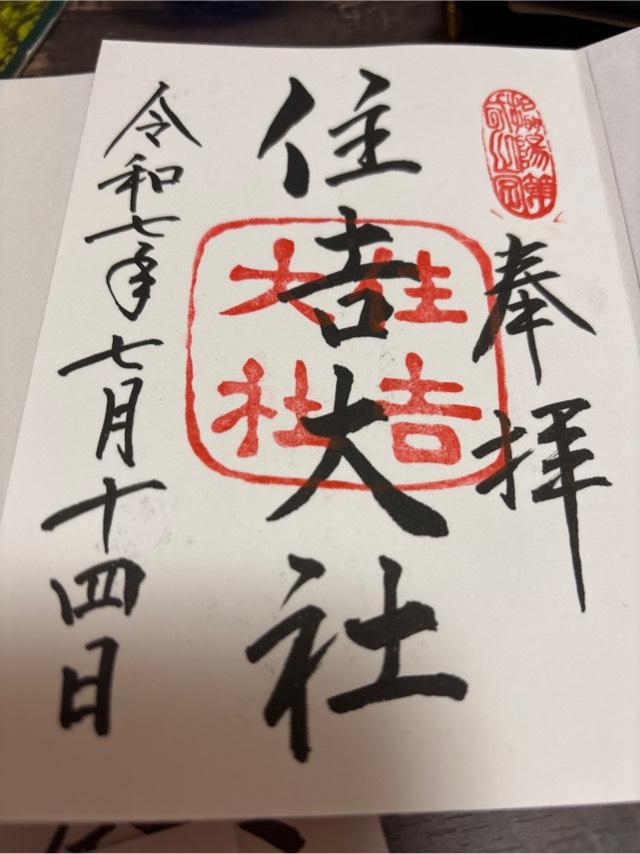 奉拝
住吉大社
住吉
大社
令和七年七月十四日